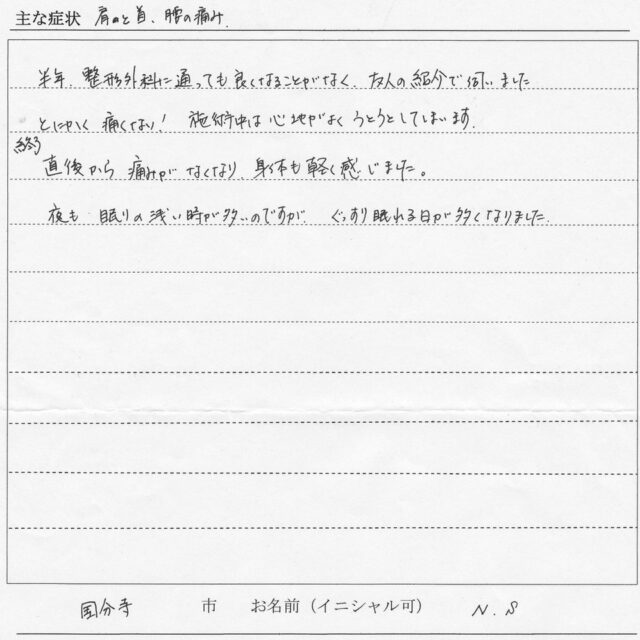 主な症状 肩と首、腰の痛み.
半年、整形外科に通っても良くなることがなく、友人の紹介で伺いました
とにかく 痛くない! 施術中は心地がよく うとうとしてしまいます.
終了
直後から 痛みが なくなり、身体も軽く感じました。
夜も 眠りの浅い時が多いのですが ぐっすり眠れる日が多くなりました.
国分寺 市 お名前(イニシャル可) N.S